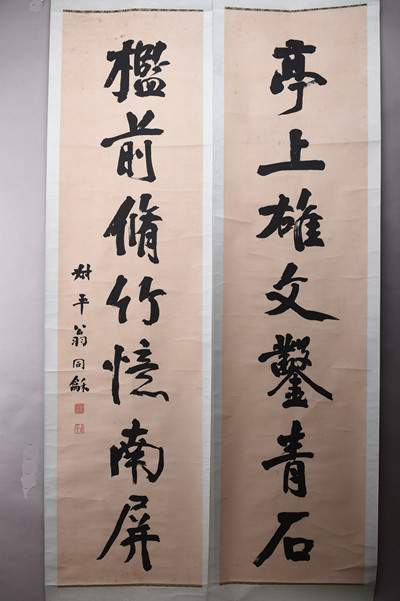 亭上雄文鑿青石
檻前脩竹憶南屏
尌平翁同龢